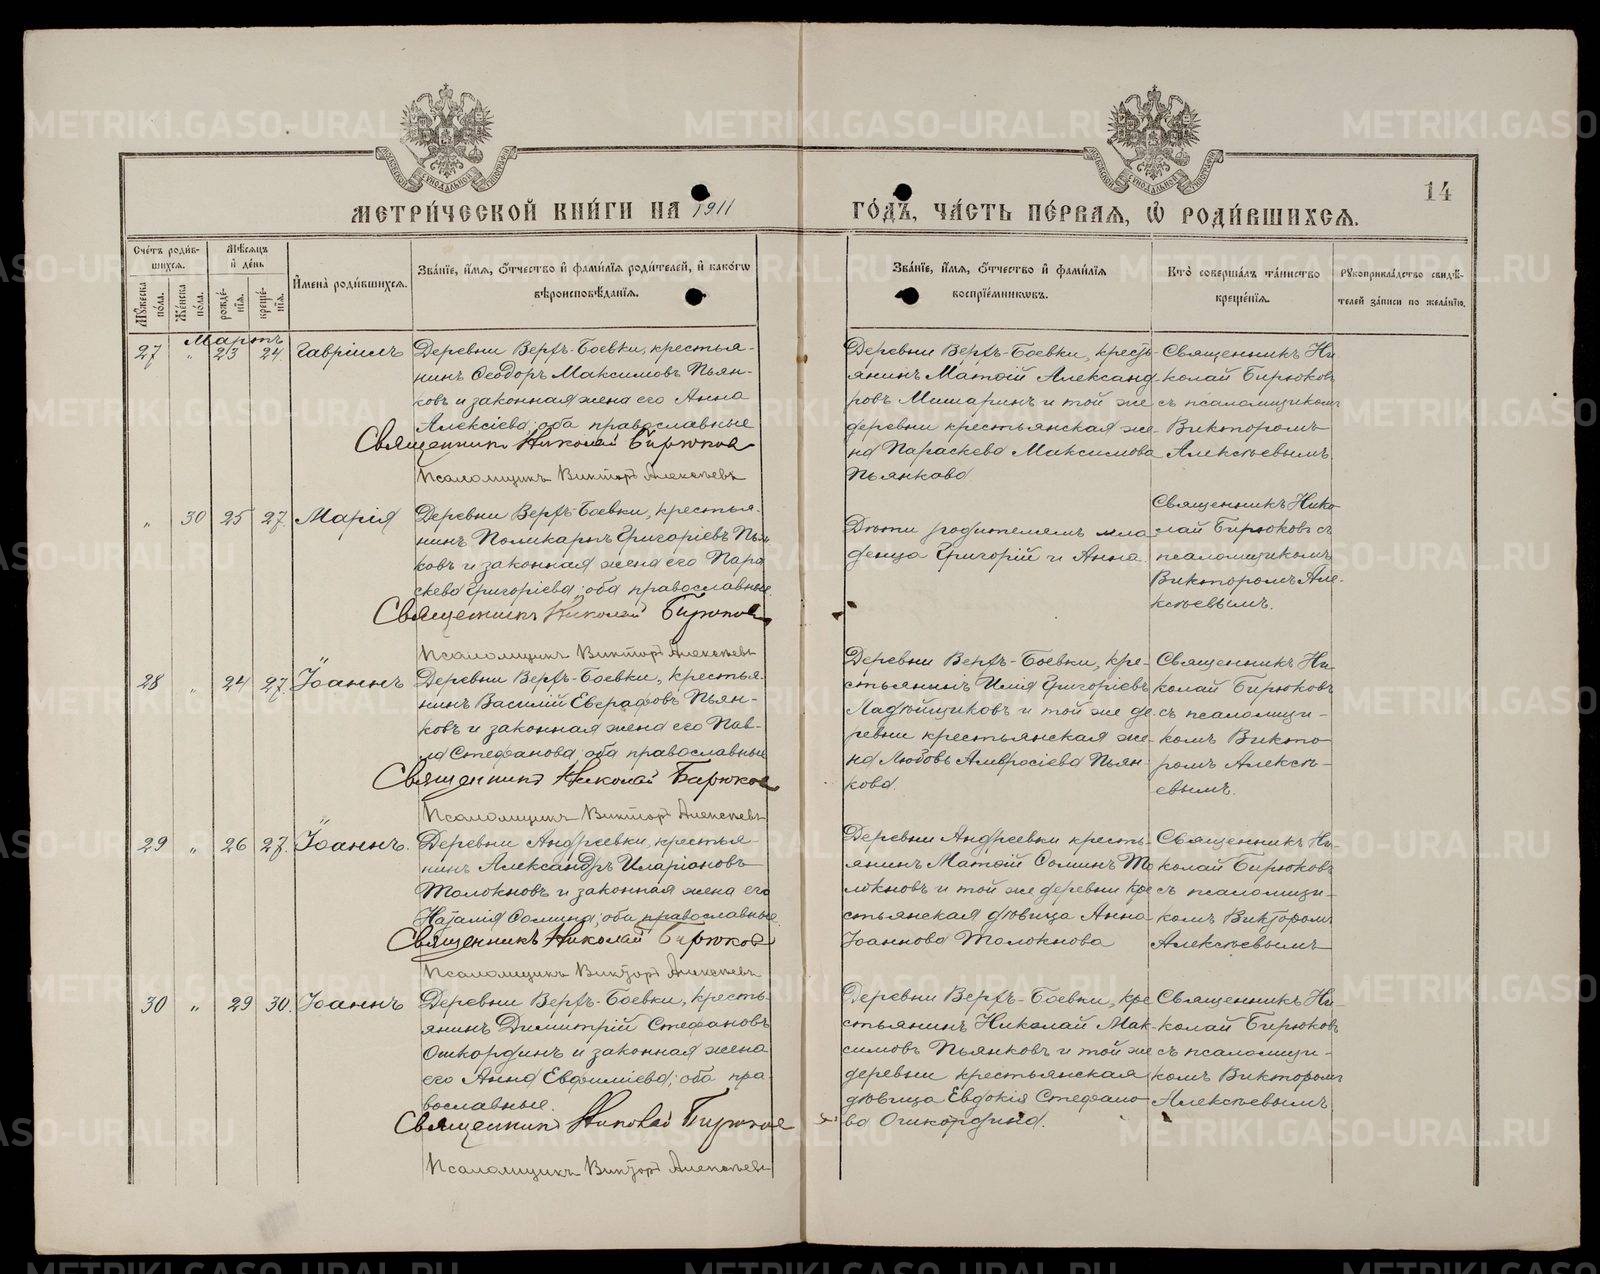 14
МЕТРИ́ЧЕСКОЙ КНИ́ГИ НА 1911
ГО́ДЪ, ЧА́СТЬ ПЕ́РВАѦ, Ѡ҆ РОДИ́ВШИХСѦ.
Сче́тъ роди́в-
шихсѧ.
Мꙋ́жеска по́ла.
Же́нска по́ла.
Мѣ́сѧцъ и҆ де́нь
рожде́нїѧ.
креще́нїѧ.
И҆мена̀ роди́вшихсѧ.
Зва́нїе, и҆́мѧ, ѻ҆́тчество и҆ фами́лїѧ роди́телей, и҆ како́гѡ
вѣроисповѣ́данїѧ.
Зва́нїе, и҆́мѧ, ѻ҆́тчество и҆ фами́лїѧ
воспрїе́мникѡвъ.
Кто̀ соверша́лъ та́инство
креще́нїѧ.
Рꙋкоприкла́дство свидѣ́-
телей за́писи по жела́нїю.
Мартъ
27 " 23 24 Гавріилъ
Деревни Верхъ-Боевки, крестья-
нинъ Ѳеодоръ Максимовъ Пьян-
ковъ и законная жена его Анна
Алексіева; оба православные
Священникъ Николай Бирюков
Псаломщикъ Викторъ Алексѣевъ
Деревни Верхъ-Боевки, кресть-
янинъ Матѳій Александ-
ровъ Мишаринъ и той же
деревни крестьянская же-
на Параскева Максимова
Пьянкова
Священникъ Ни-
колай Бирюковъ
съ псаломщикомъ
Викторомъ
Алексѣевымъ.
" 30 25 27 Марія
Деревни Верхъ-Боевки, крестья-
нинъ Поликарпъ Григоріевъ Пьян-
ковъ и законная жена его Пара-
скева Григоріева; оба православные.
Священникъ Николай Бирюков
Псаломщикъ Викторъ Алексѣевъ
Дѣти родителямъ мла-
денца Григорій и Анна.
Священникъ Нико-
лай Бирюковъ съ
псаломщикомъ
Викторомъ Але-
ксѣевымъ.
28 " 24 27 Іоаннъ
Деревни Верхъ-Боевки, крестья-
нинъ Василій Евграфовъ Пьян-
ковъ и законная жена его Пав-
ла Стефанова; оба православные
Священникъ Николай Бирюков
Псаломщикъ Викторъ Алексѣевъ
Деревни Верхъ-Боевки, кре-
стьянинъ Илія Григоріевъ
Ладѣйщиковъ и той же де-
ревни крестьянская же-
на Любовь Амвросіева Пьян-
кова.
Священникъ Ни-
колай Бирюковъ
съ псаломщи-
комъ Викто-
ромъ Алексѣ-
евымъ.
29 " 26 27. Іоаннъ.
Деревни Андреевки, крестья-
нинъ Александръ Иларіоновъ
Толокновъ и законная жена его
Наталія Ѳомина; оба православные
Священникъ Николай Бирюков
Псаломщикъ Викторъ Алексѣевъ
Деревни Андреевки кресть-
янинъ Матѳій Ѳоминъ То-
локновъ и той же деревни кре-
стьянская дѣвица Анна
Іоаннова Толокнова
Священникъ Ни-
колай Бирюковъ
съ псаломщи-
комъ Викторомъ
Алексѣевымъ
30 " 29 30. Іоаннъ
Деревни Верхъ-Боевки, кресть-
янинъ Димитрій Стефановъ
Ошкординъ и законная жена
его Анна Евфиміева; оба пра-
вославные.
Священникъ Николай Бирюков
Псаломщикъ Викторъ Алексѣевъ
Деревни Верхъ-Боевки, кре-
стьянинъ Николай Мак-
симовъ Пьянковъ и той же
деревни крестьянская
дѣвица Евдокія Стефано-
ва Ошкордина.
Священникъ Ни-
колай Бирюковъ
съ псаломщи-
комъ Викторомъ
Алексѣевымъ
METRIKI.GASO-URAL.RU